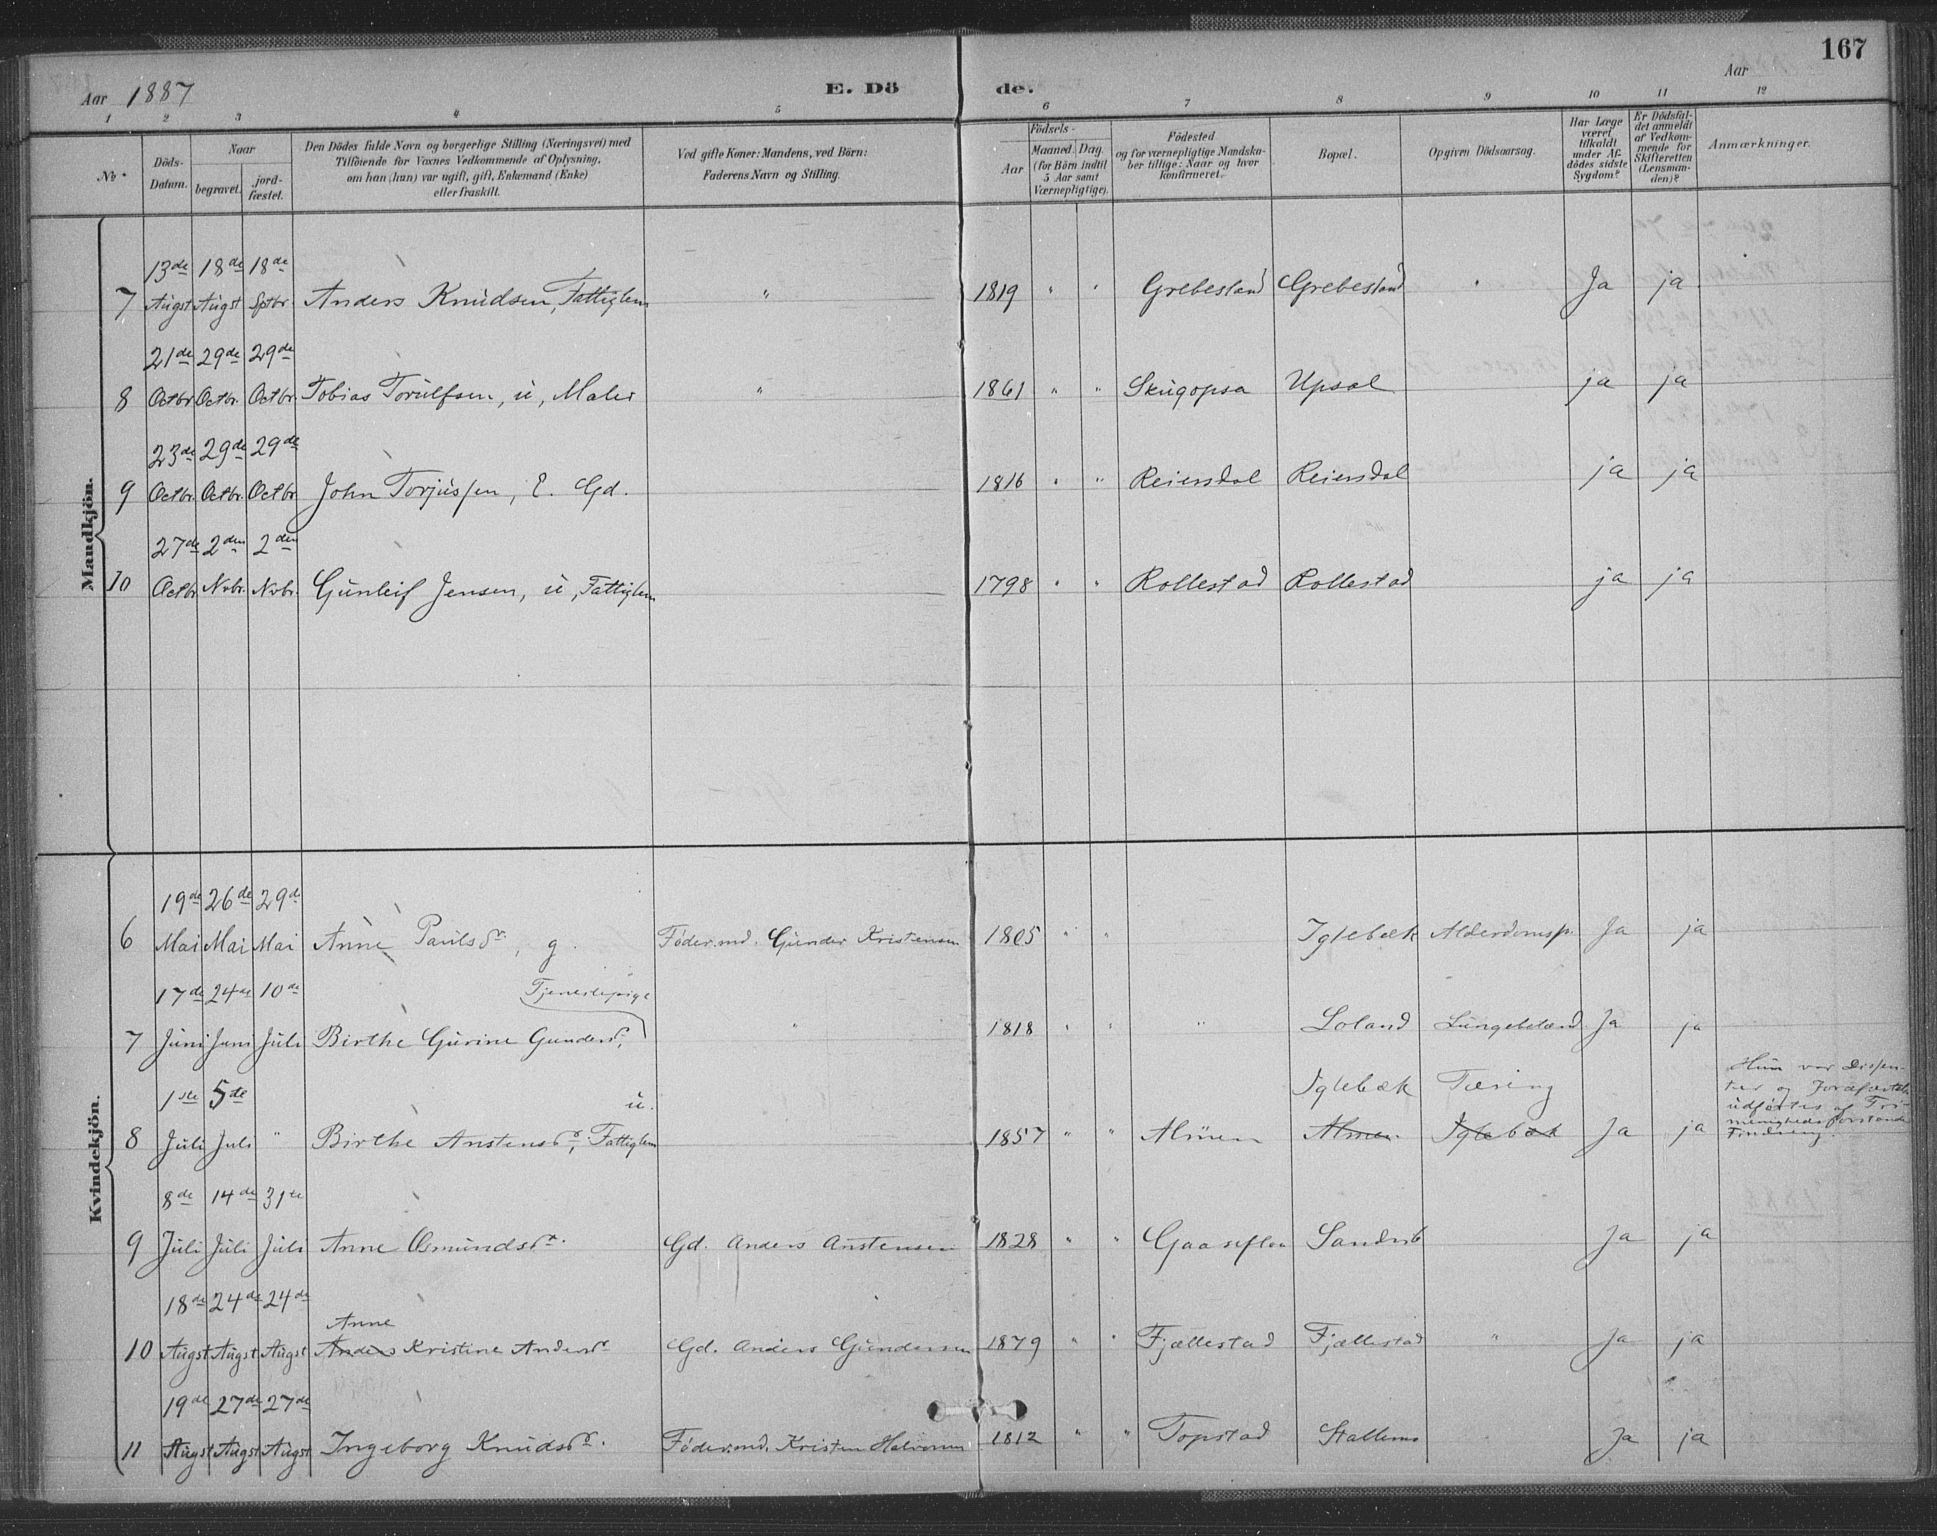 167
Aar 1887 E. Dö de. Aar
1 2 3 4 5 6 7 8 9 10 11 12
No. Döds-Datum. Naar begravet. jord-fæstet. Den Dödes fulde Navn og borgerlige Stilling (Næringsvei) med Tilföiende for Voxnes Vedkommende af Oplysning, om han (hun) var ugift, gift, Enkemand (Enke) eller fraskilt. Ved gifte Koner: Mandens, ved Börn: Faderens Navn og Stilling. Födsels- Aar Maaned. Dag. (for Börn indtil 5 Aar samt Værnepligtige). Födested og for værnepligtige Mandskaber tillige: Naar og hvor konfirmeret. Bopæl. Opgiven Dödsaarsag. Har Læge været tilkaldt under Afdödes sidste Sygdom? Er Dödsfaldet anmeldt af Vedkommende for Skifteretten (Lensmanden)? Anmærkninger.
Mandkjön.
13de 18de 18de
7 Augst Augst Sptbr. Anders Knudsen, Fattiglem " 1819 " " Grebestad Grebestad " Ja ja
21de 29de 29de
8 Octbr Octbr. Octbr. Tobias Torulfsen, u, Maler " 1861 " " Skugopsa Upsal ja ja
23de 29de 29de
9 Octbr. Octbr. Octbr John Torjussen, E. Gd. 1816 " " Reiersdal Reiersdal ja ja
27de 2den 2den
10 Octbr Nvbr. Nvbr. Gunleif Jensen, u, Fattiglem 1798 " " Rollestad Rollestad ja ja
Kvindekjön.
19de 26de 29d
6 Mai Mai Mai Anne Paulsdr. , g. Föder.md. Gunder Kristensen 1805 " " Iglebæk Alderdomssv. Ja ja
17de 24de 10de Tjenestepige
7 Juni Juni Juli Birthe Gurine Gundersd. " 1818 " " " Loland Lungebetænd Ja ja
1ste 5de u. Iglebæk Tæring Hun var Dissen-
8 Juli Juli " Birthe Austensdr, Fattiglem 1857 " " Almen Almen Iglebæk Ja ja
ter og Jordfæstels
udförtes af Fri-
menighedsforstander
8de 14de 31te
9 Juli Juli Juli Anne Osmundsdr. Gd. Anders Austensen 1828 " " Gaaseflaa Sandrib Ja ja
18de 24de 24de
Anne
10 Augst Augst Augst Anders Kristine Andersdr Gd. Anders Gundersen 1879 " " Fjællestad Fjællestad " Ja ja
19de 27de 27de
11 Augst Augst Augst Ingeborg Knudsdr. Föder.md. Kristen Halvorsen 1812 " " Topstad Stallemo Ja ja